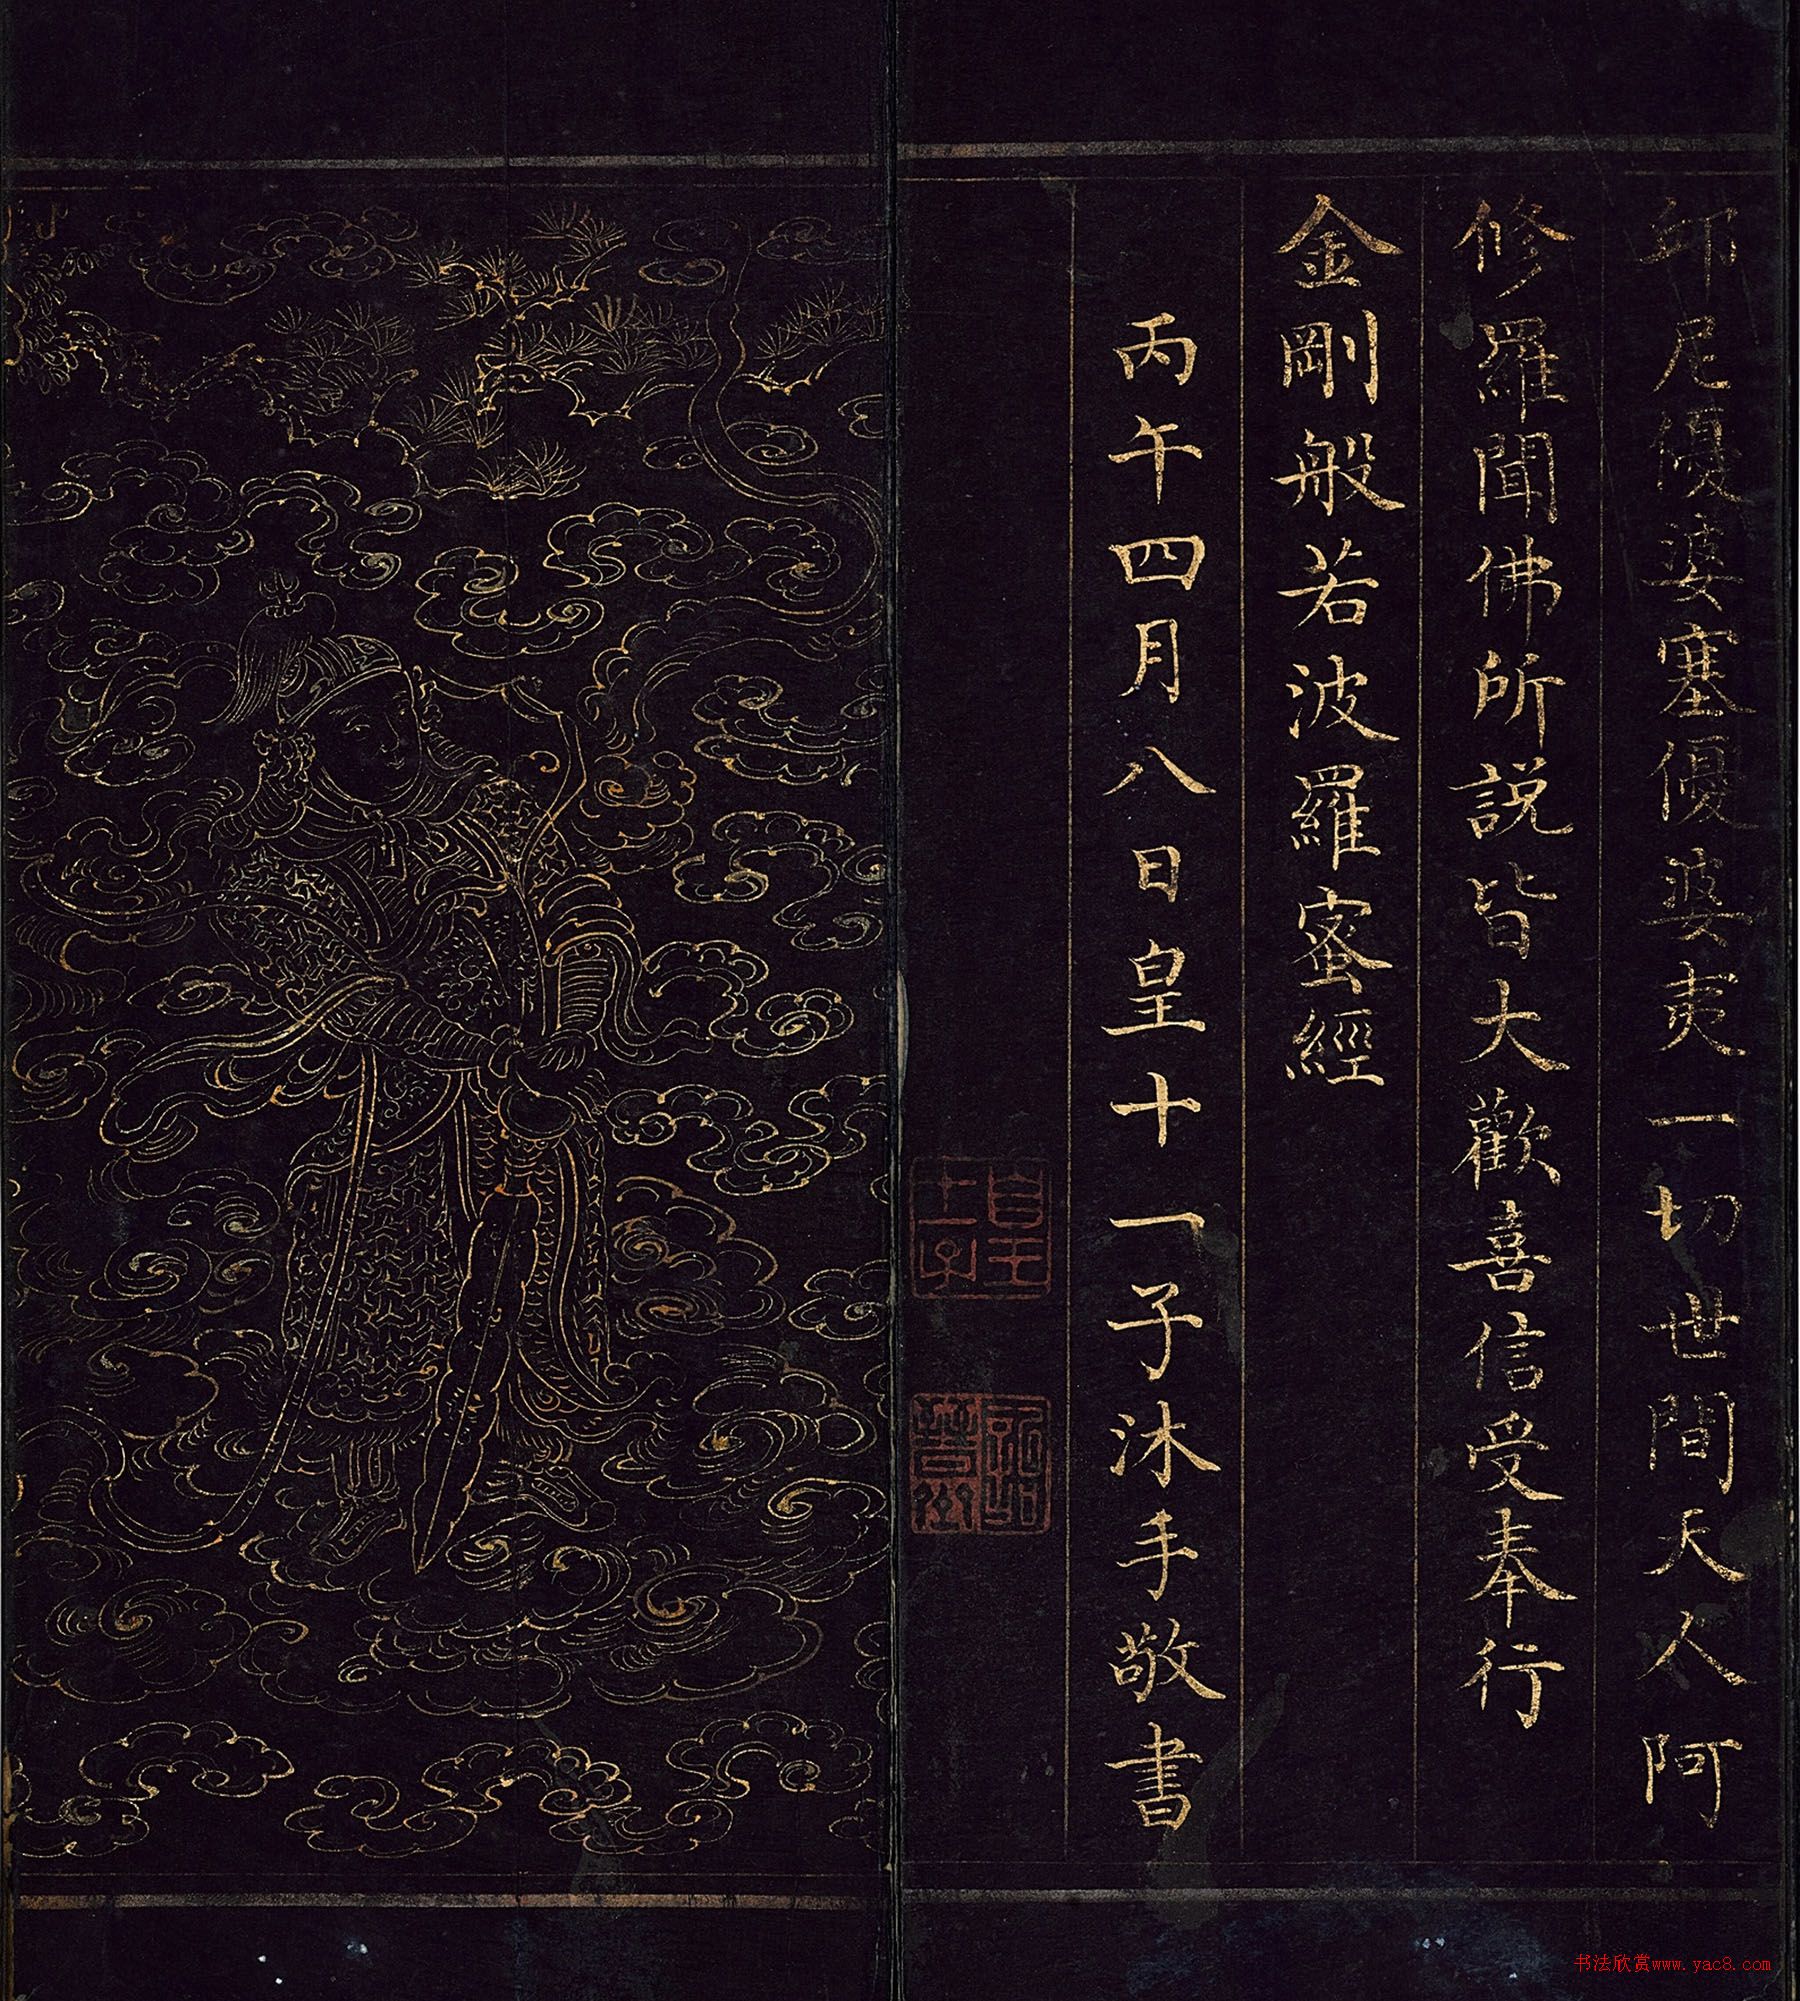 邱尼優婆塞優婆夷一切世間天人阿
修羅聞佛所說皆大歡喜信受奉行
金剛般若波羅蜜經
丙午四月八日皇十一子沐手敬書
皇十一子
书法欣赏www.yac8.com